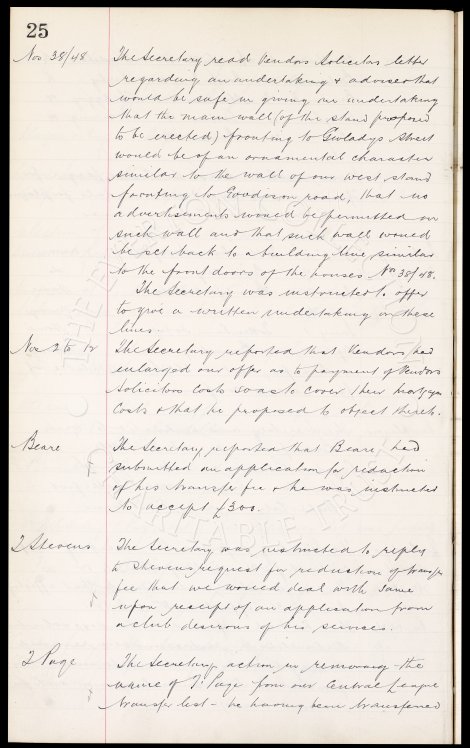 25
Nos 38/48 The Secretary read Vendors Solicitors letter
regarding an undertaking & advised that
would be safe in giving an undertaking
that the main wall (of the stand proposed
to be erected) fronting to Gwladys Street
would be of an ornamental character
similar to the wall of our west stand
fronting to Goodison road, that no
advertisements would be permitted on
such wall and that such wall would
be set back to a building line similar
to the front doors of the houses Nos 38/48.
The Secretary was instructed to offer
to give a written undertaking on these
lines.
Nos 2 to 12 The Secretary reported that Vendors had
enlarged our offer as to payment of Vendors
Solicitors costs so as to cover their mortgagees
costs & that he proposed to object thereto.
Beare The Secretary reported that Beare had
submitted an application for reduction
of his transfer fee & he was instructed
to accept £300.
J Stevens The Secretary was instructed to reply
to Stevens request for reduction of transfer
fee that we would deal with same
upon receipt of an application from
a club desirous of his services.
J Page The Secretary action in removing the
name of J. Page from our Central League
transfer list - he having been transferred
THE EVERTON
CHARITABLE TRUST